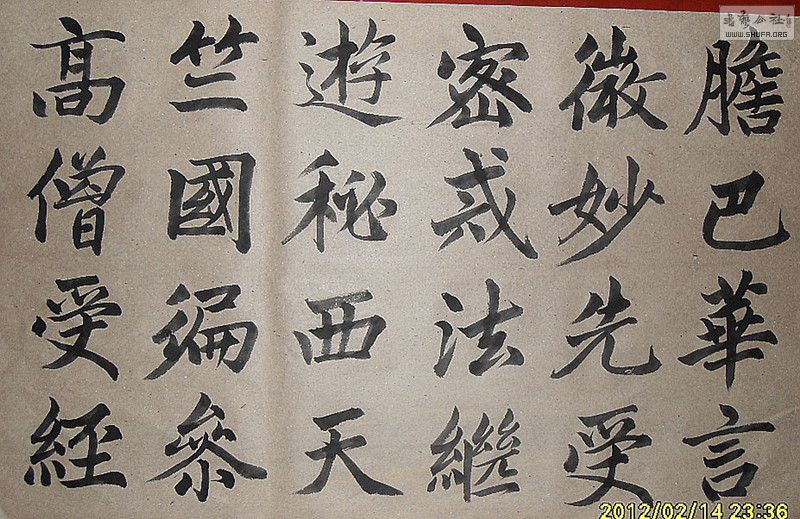 膽巴華言
微妙先受
密戒法繼
遊秘西天
竺國徧參
高僧受經
書藝公社
WWW.SHUFA.ORG
2012/02/14 23:36